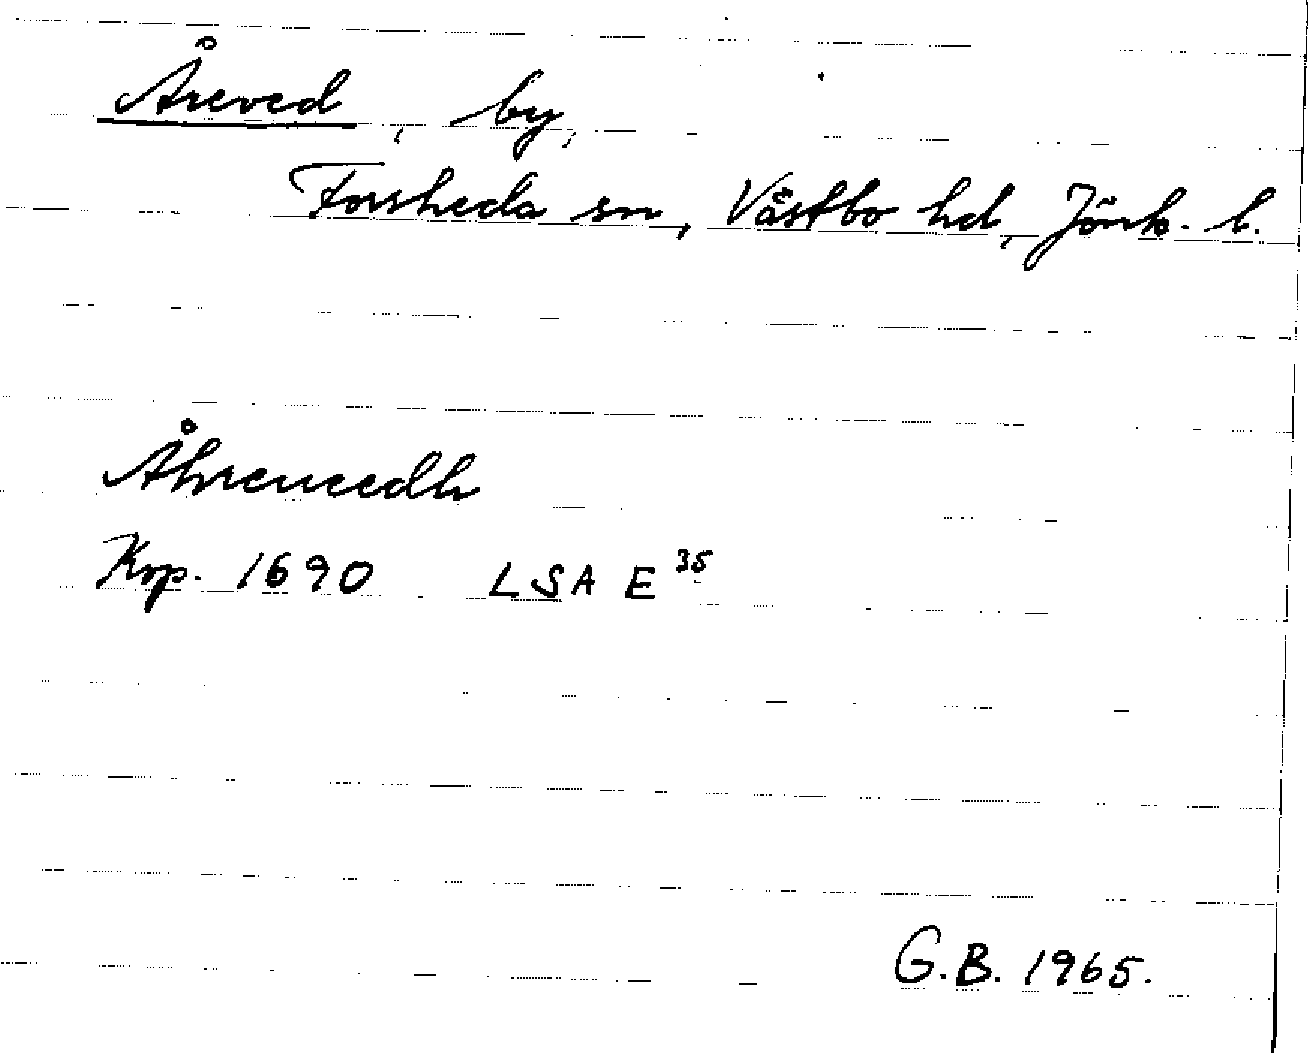 Åreved, by,
Forsheda sn, Västbo hd, Jönk. l.
Åhreweedh
Kop. 1690 LSA E 35
G.B. 1965.